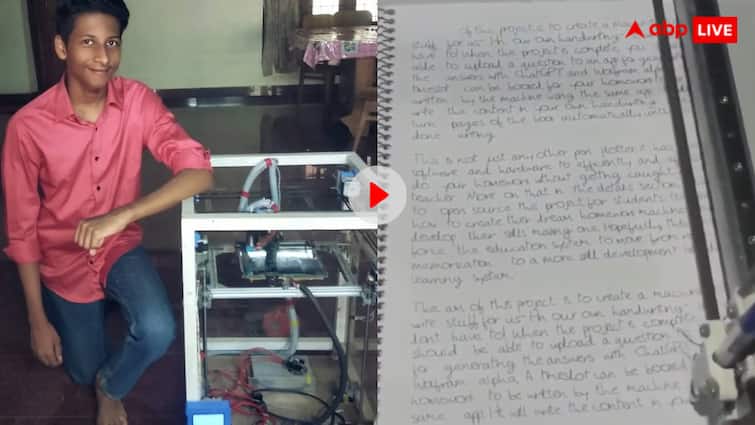 abp LIVE
of this project is to create a mac
stuff for us in our own handwriting
have to! when this project is complete, you
able to upload a question to an app for genera
the answers with ChatGPT and Wolfram alpha
timeslot can be booked for your homework
written by the machine using the same app
write this content in your own handwriting
turn pages of the book automatically once
done writing.
This is not just any other pen plotter
software and hardware to efficiently and
do your homework without getting caught
teacher More on that in the details section
to open source this project for students
how to create their dream homework machine
develop their skills making one. Hopefully this
force the education system to move from
memorization to a more skill development
learning system.
The aim of this project is to create a machine
write stuff for us in our own handwriting
dont have to! when this project is complete
should be able to upload a question
for generating the answers with ChatGPT
Wolfram alpha. A timeslot can be booked
homework to be written by the machine
same app! It will write the content in your